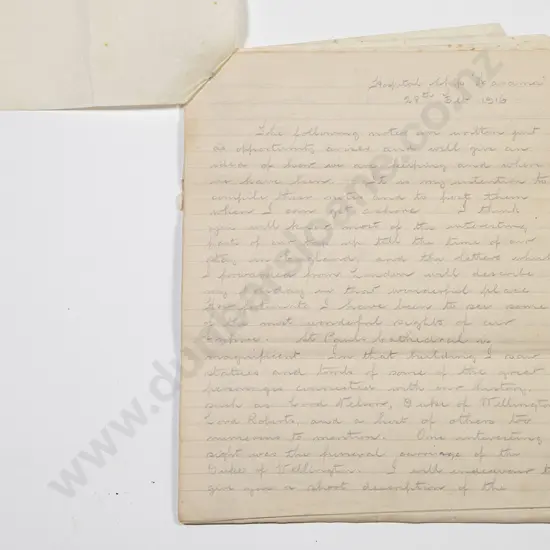 Hospital Ship
28th Feb 1916
The following notes are written just
as opportunity arises and will give an
idea of how we are keeping and where
we have been. It is my intention to
compile these notes and to post them
when I can get ashore. I think
you will have most of the interesting
parts of our up till the time of our
stay in England, and the letters which
I forwarded from London will describe
my holiday in that wonderful place
Fortunate to I have been to see some
of the most wonderful sights of our
Empire. St Pauls Cathedral is
magnificent. In that building I saw
statues and tombs of some of the great
personages connected with our history,
such as Lord Nelson, Duke of Wellington
Lord Roberts, and a host of others too
numerous to mention. One interesting
sight was the funeral carriage of the
Duke of Wellington. I will endeavour to
give you a short description of the
www.dunbarsloane.co.nz